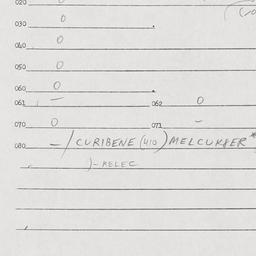 020 0
030 0
040 0
050 0
060 0
061 - 062 0
070 0 071 -
080 - / CURIBENE (410) MELCUKHER *
)- RELEC